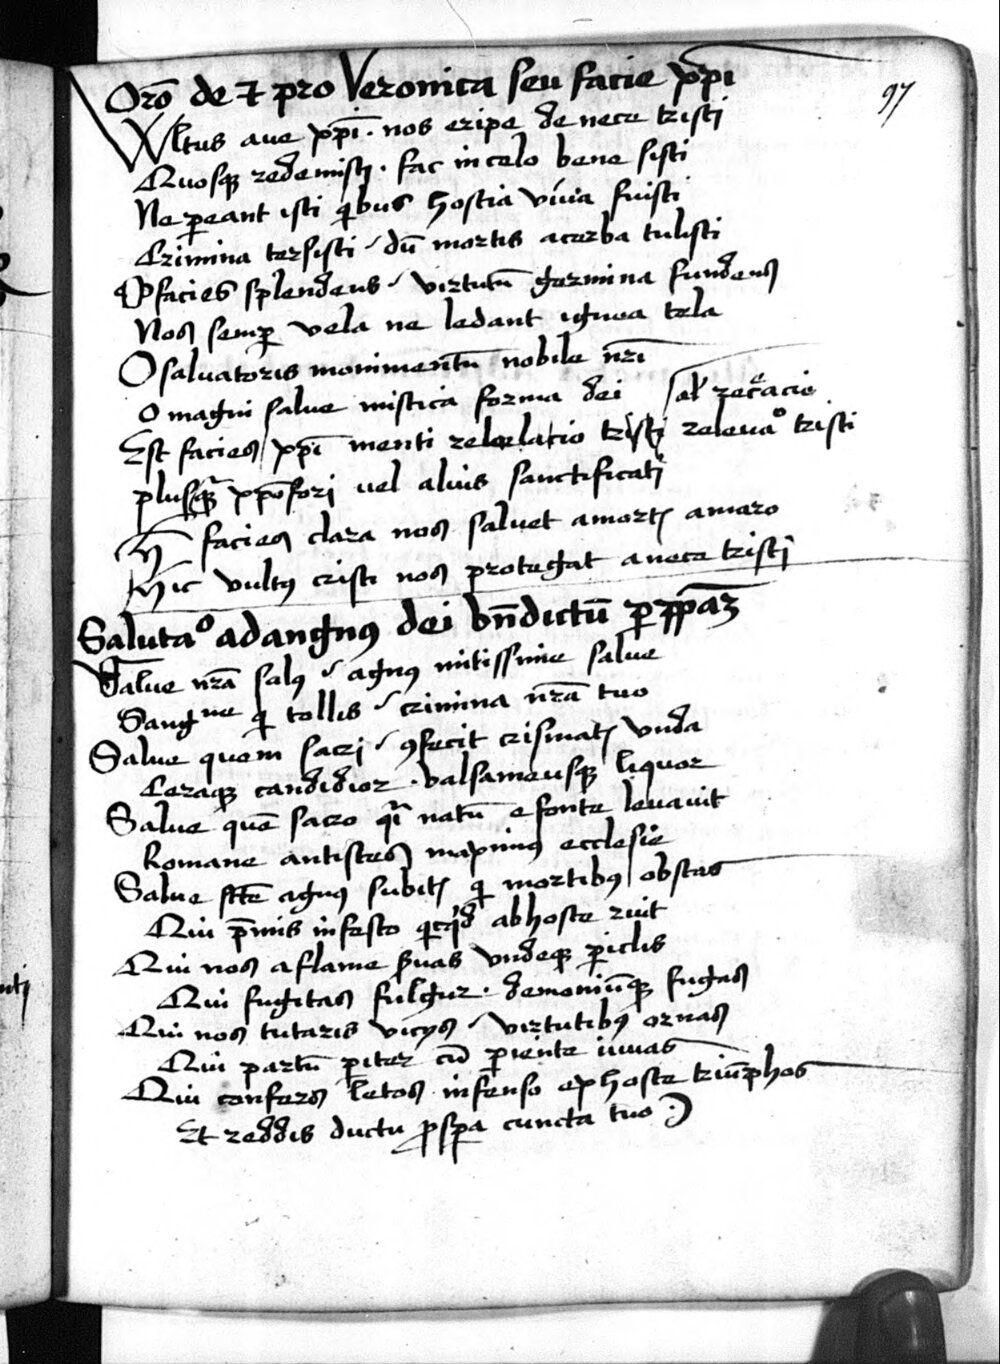 97
Orõ de et pro Veronica seu facie xp̃i
Wltus aue xp̃i · nos eripe de nece tristi
Quosqꝫ redemisti · fac in celo bene sisti
Ne ꝑeant isti qͥbus hostia viuia fuisti
Crimina tersisti / dũ mortis acerba tulisti
O facies splendens / virtutũ germina fundens
Nos semꝑ vela ne ledant ignea tela
O saluatoris monimentũ nobile nr̃i
O magni salue mistica forma dei sal' recͣacio
Est facies xp̃i menti tristi releuaͦ tristi
plusqͣ xp̃ofori vel aluis sanctificati
H̃ facies clara nos saluet a morte amaro
Hic vultꝰ cristi nos protegat a nece tristi
Salutaͦ ad angnꝰ dei bñdictũ ꝑ ppãꝫ
Salue nr̃a salꝰ / agnꝰ mitissime salue
Sangͧⁿᵉ qͥ tollis / crimina nr̃a tuo
Salue quem sacri / ꝯfecit crismatis vnda
Ceraqꝫ candidior · balsameusqꝫ liquor
Salue quẽ sacro qͣi natũ e fonte leuauit
Romane antistes maximꝰ ecclesie
Salue sc̃te agnꝰ subitis qͥ mortibꝰ obstas
Qui p̃mis infesto qͥcqͥd ab hoste ruit
Qui nos a flame ẜuas vndeqꝫ ꝑiclis
Qui fugitas fulgur · demoniũqꝫ fugas
Qui nos tutaris vicijs / virtutibꝰ ornas
Qui partũ ꝑiter cũ ꝑiente iuuas
Qui confers letos infenso ex hoste triũphos
Et reddis ductu ꝓsꝑa cuncta tuo